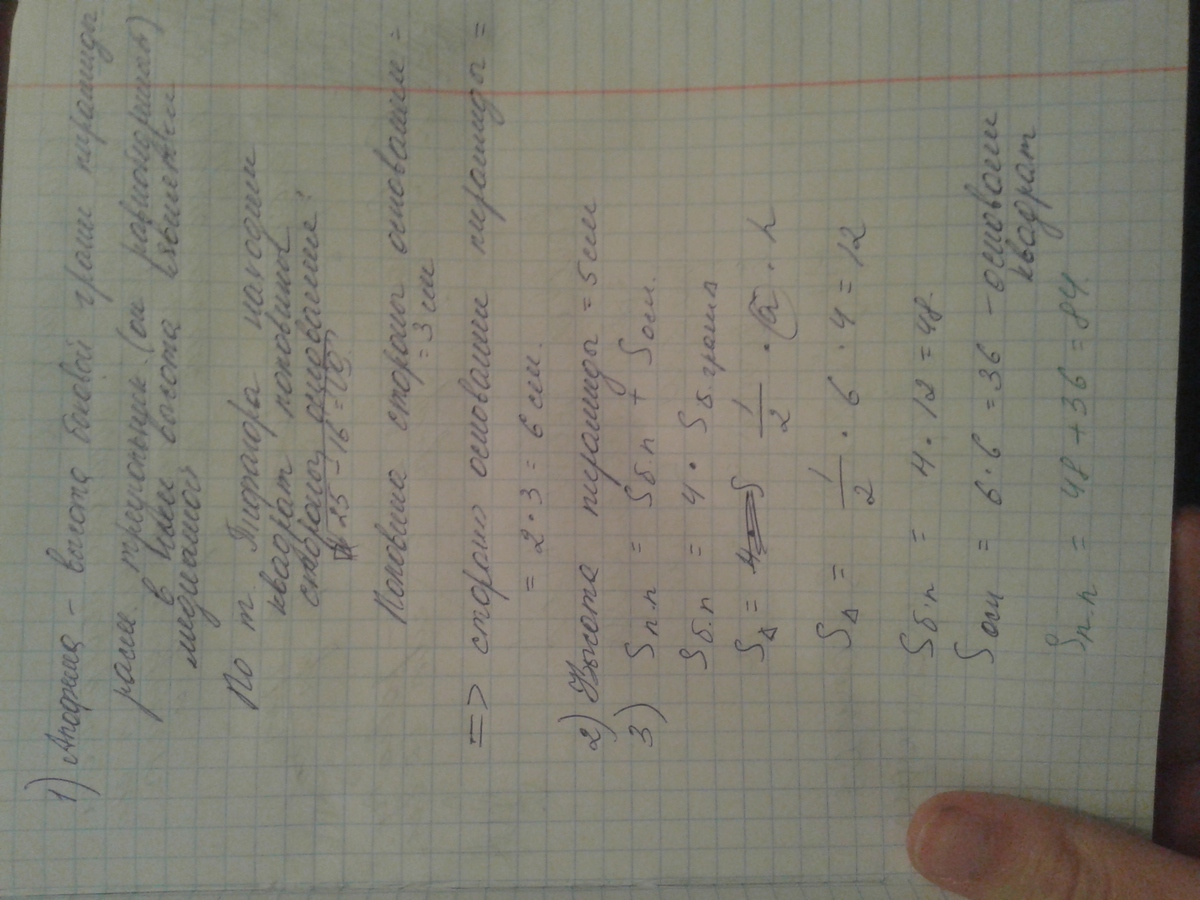 1) Апофема - высота боковой грани пирамиды
равн. треугольник (он равнобедренный)
в нём высота является
медианой
По т. Пифагора находим
квадрат половины
стороны основания:
25 - 16 = (9)
Половина стороны основания =
= 3 см
=> сторона основания пирамиды =
= 2 · 3 = 6 см.
2) Высота пирамиды = 5 см
3) Sп.п = Sбп + Sосн.
Sб.п = 4 · Sб.грани
S∆ = 1/2 · a · h
S∆ = 1/2 · 6 · 4 = 12
Sб.п = 4 · 12 = 48.
Sосн = 6·6 = 36 - основание
квадрат
Sп.п = 48 + 36 = 84